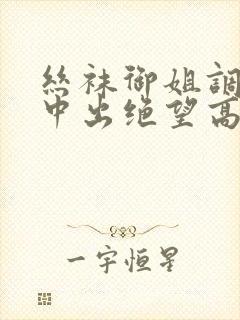 丝袜御姐調
中出绝望高
一宇恒星